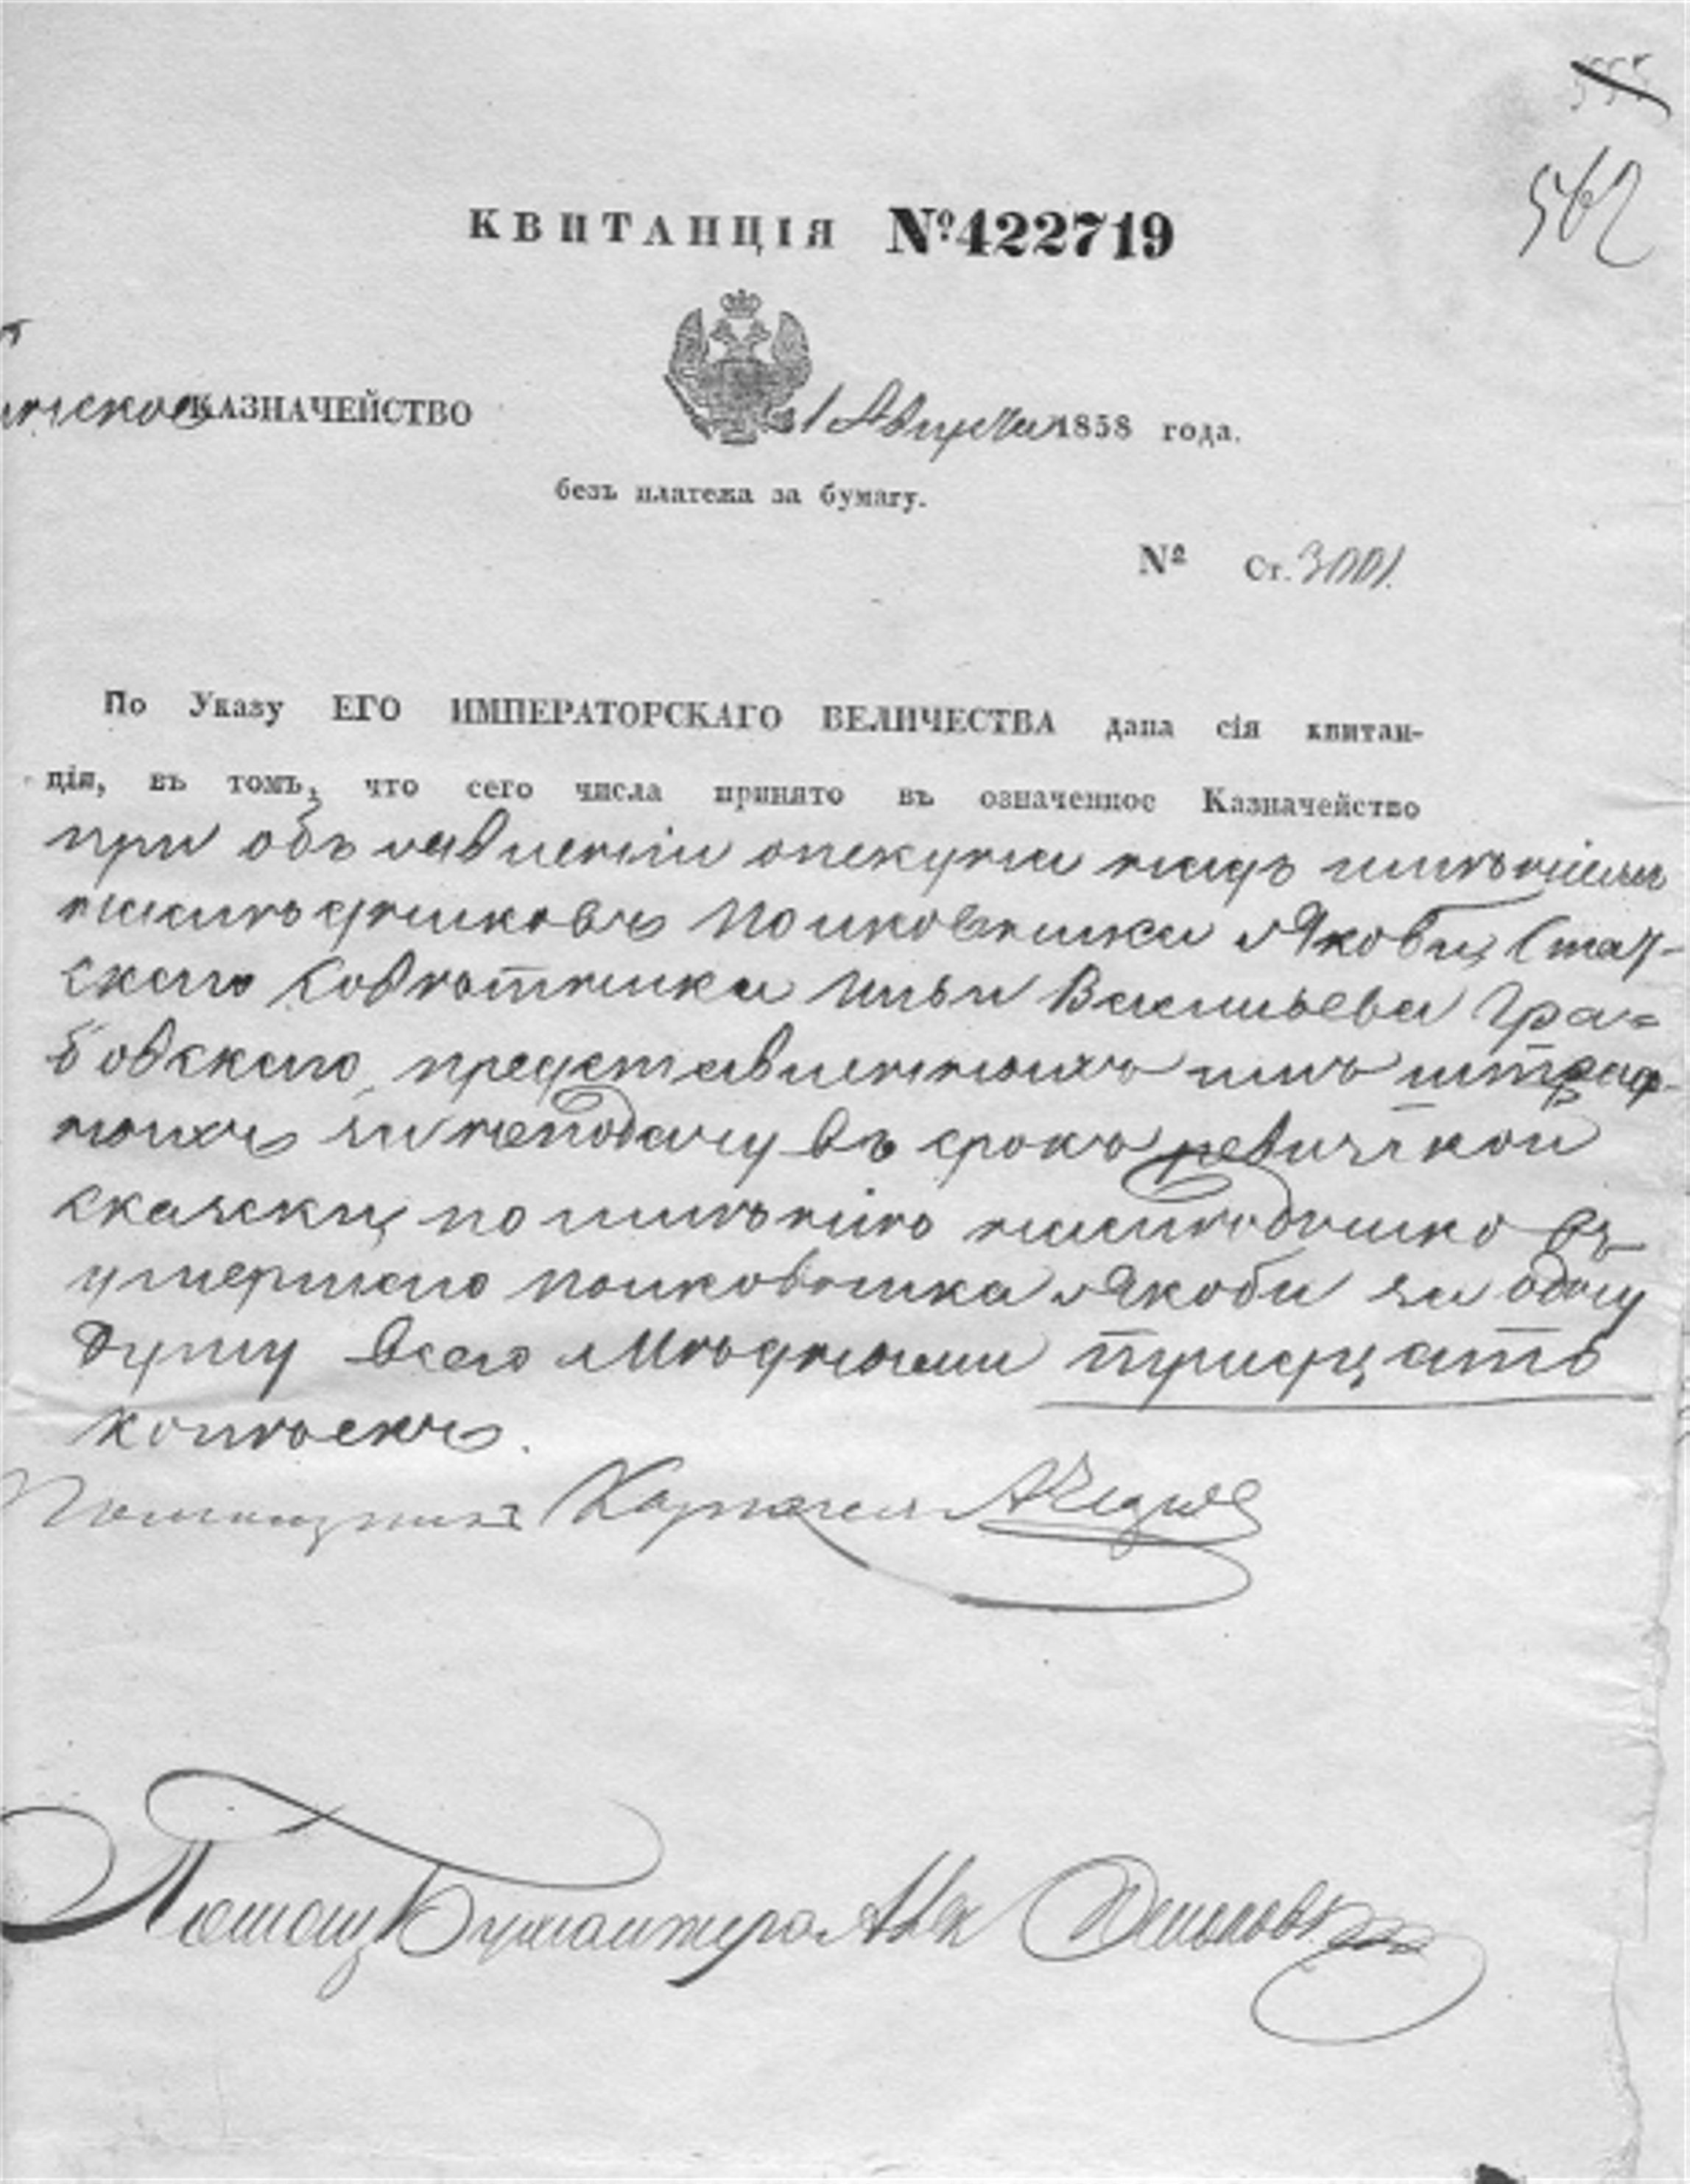 562
КВИТАНЦІЯ №422719
КАЗНАЧЕЙСТВО
1858 года.
безъ платежа за бумагу.
№ Ст. 3001.
По Указу ЕГО ИМПЕРАТОРСКАГО ВЕЛИЧЕСТВА дана сія квитан-
ція, въ томъ, что сего числа принято въ означенное Казначейство
при объявленіи опекуна надъ имѣніем
наслѣдниковъ Полковника Якоби, Стат-
скаго Совѣтника Ильи Васильева Гра=
бовскаго, представленныхъ имъ штраф-
ныхъ за неподачу въ срокъ ревизской
сказки, по имѣнію наслѣдниковъ
умершаго Полковника Якоби за одну
душу всего Мѣдною тридцать
копѣекъ.
Помощ Бухгалтера